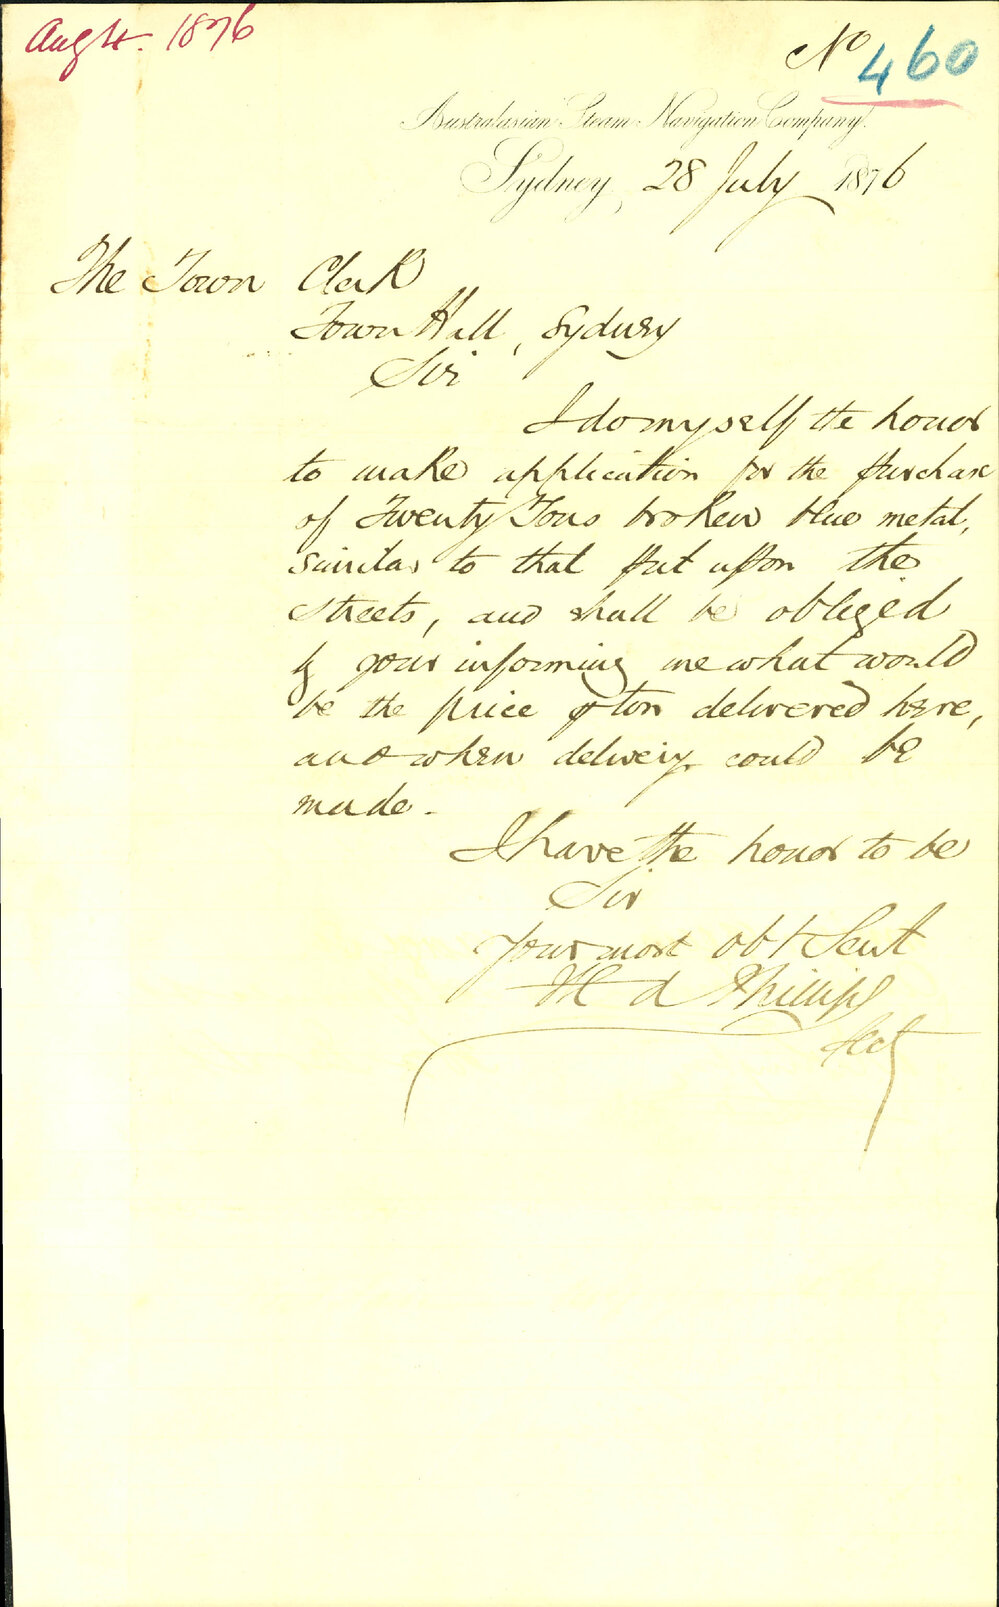 Aug 4. 1876
No 460
Australasian Steam Navigation Company.
Sydney, 28 July 1876
The Town Clerk
Town Hall, Sydney
Sir
I do myself the honor
to make application for the purchase
of Twenty Tons broken blue metal,
similar to that put upon the
streets, and shall be obliged
by your informing me what would
be the price p ton delivered here,
and when delivery could be
made.
I have the honor to be
Sir
Your most obt Servt
Phillips
Secy